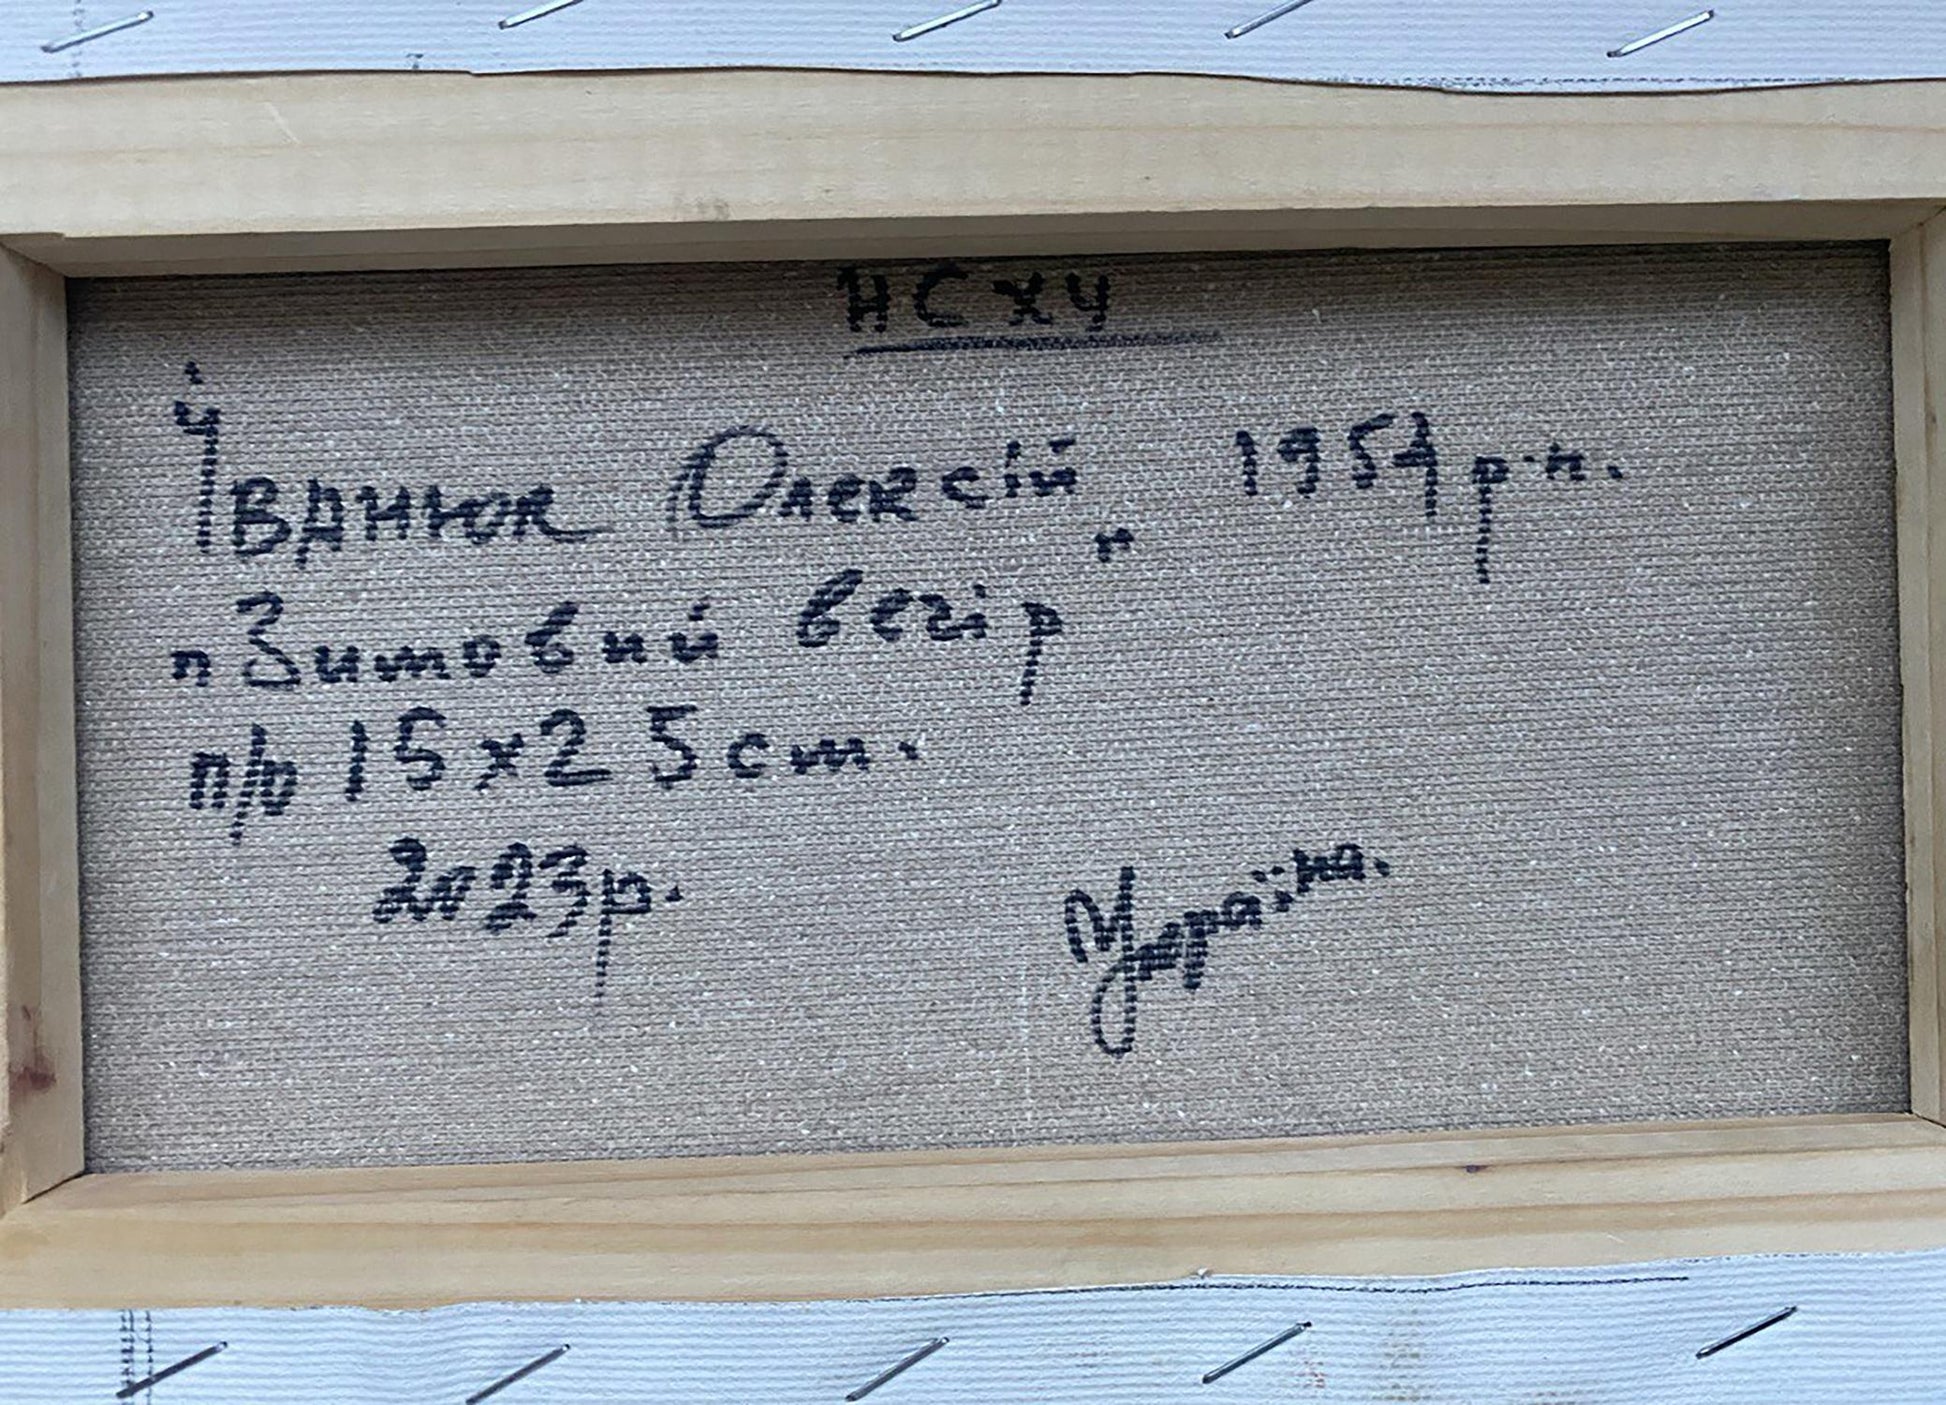 НСХУ
Іванюк Олексій 1954 р.н.
„Зимовий вечір"
п/о 15x25 cm.
2023р.
Україна.